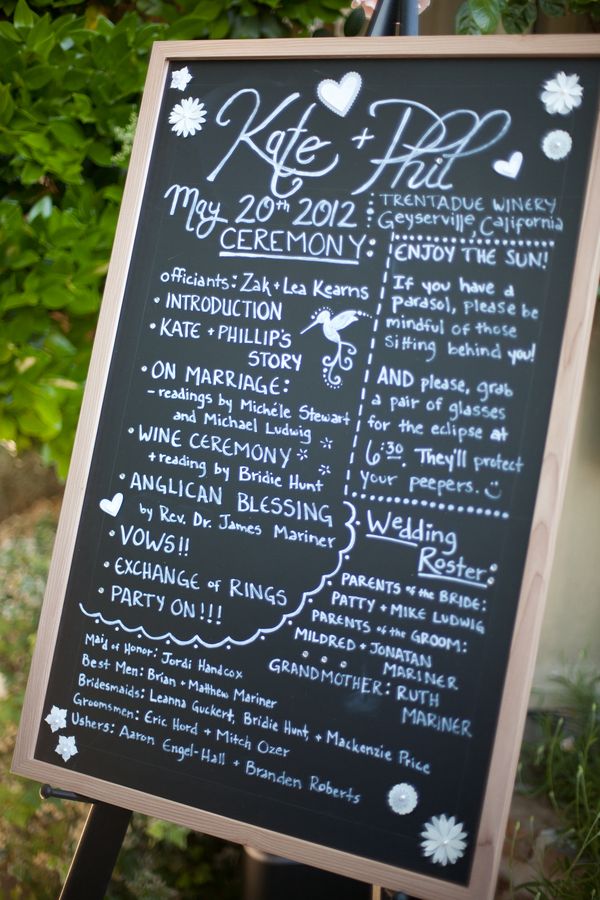 Kate + Phil
May 20th 2012
TRENTADUE WINERY
Geyserville, California
CEREMONY:
officiants: Zak + Lea Kearns
• INTRODUCTION
• KATE + PHILLIP'S
STORY
• ON MARRIAGE:
- readings by Michéle Stewart
and Michael Ludwig
• WINE CEREMONY
+ reading by Bridie Hunt
• ANGLICAN BLESSING
by Rev. Dr. James Mariner
• VOWS!!
• EXCHANGE of RINGS
• PARTY ON!!!
ENJOY THE SUN!
If you have a
Parasol, please be
mindful of those
sitting behind you!
AND please, grab
a pair of glasses
for the eclipse at
6:30. They'll protect
your peepers. :)
Wedding
Roster:
PARENTS of the BRIDE:
PATTY + MIKE LUDWIG
PARENTS of the GROOM:
MILDRED + JONATAN
MARINER
GRANDMOTHER: RUTH
MARINER
Maid of Honor: Jordi Handcox
Best Men: Brian + Matthew Mariner
Bridesmaids: Leanna Guckert, Bridie Hunt, + Mackenzie Price
Groomsmen: Eric Hord + Mitch Ozer
Ushers: Aaron Engel-Hall + Branden Roberts